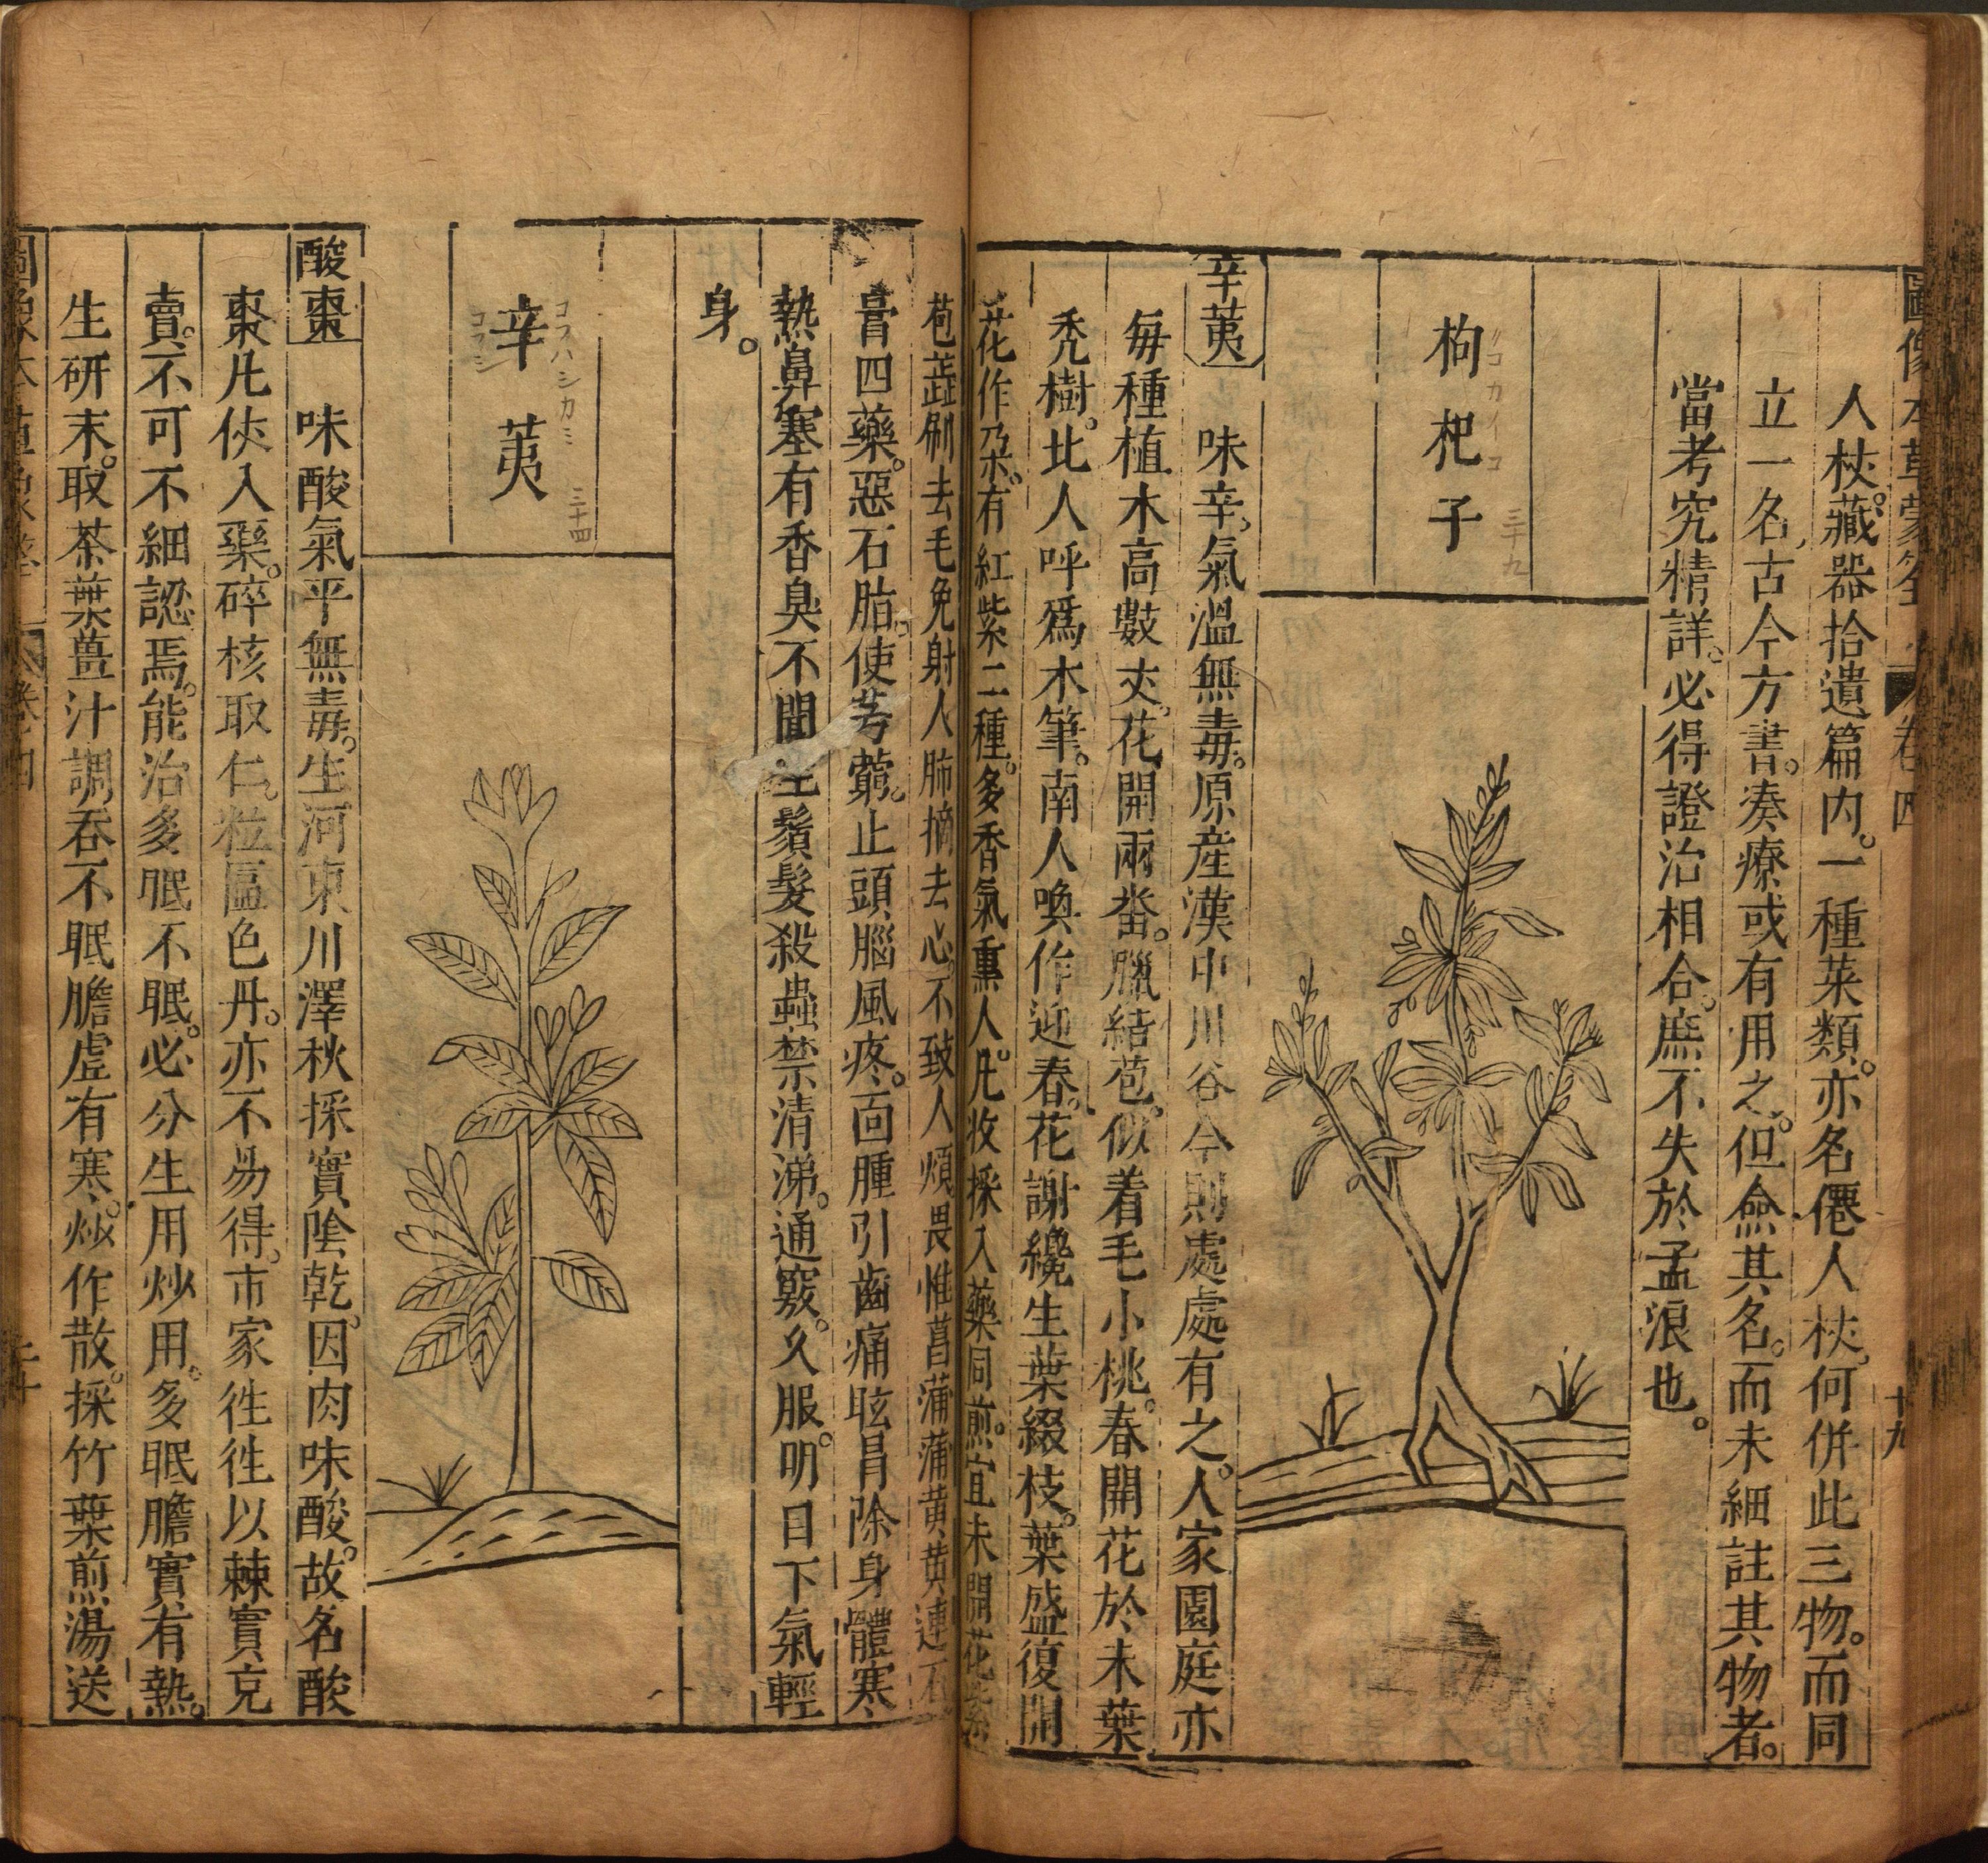 圖像本草蒙筌 卷四 十九
人杖。藏器拾遺篇内。一種菜類。亦名僊人杖。何併此三物。而同
立一名。古今方書。凑療或有用之。但僉其名。而未細註其物者。
當考究精詳。必得證治相合。庶不失於孟浪也。
枸杞子
三十九
辛荑 味辛、氣溫無毒。原産漢中川谷今則處處有之。人家園庭亦
每種植木高數丈。花開兩畨。臘結苞。似着毛小桃。春開花於未葉
禿樹。北人呼爲木筆。南人喚作迎春。花謝纔生葉綴枝。葉盛復開
花作朶。有紅紫二種。多香氣熏人。凡收採入藥同煎。宜未開花
苞蕋刷去毛免射人肺摘去心。不致人煩畏惟菖蒲蒲黄黄連石
膏四藥。惡石脂。使芎藭。止頭腦風疼。面腫引齒痛眩冐除身體寒
熱鼻塞有香臭不聞生鬚髮殺蟲禁清涕。通竅。久服。明目下氣輕
身。
コフハシカミ
辛荑
コフシ
三十四
酸棗 味酸氣平無毒。生河東川澤秋採實陰乾。因肉味酸。故名酸
棗凡使入藥。碎核取仁。粒匾色丹。亦不易得。市家徃徃以棘實充
賣。不可不細認焉。能治多眠不眠。必分生用炒用。多眠膽實有熱。
生研末。取茶葉薑汁調吞不眠膽虚有寒。炒作散。採竹葉煎湯送
圖象本草蒙筌 卷四 二十